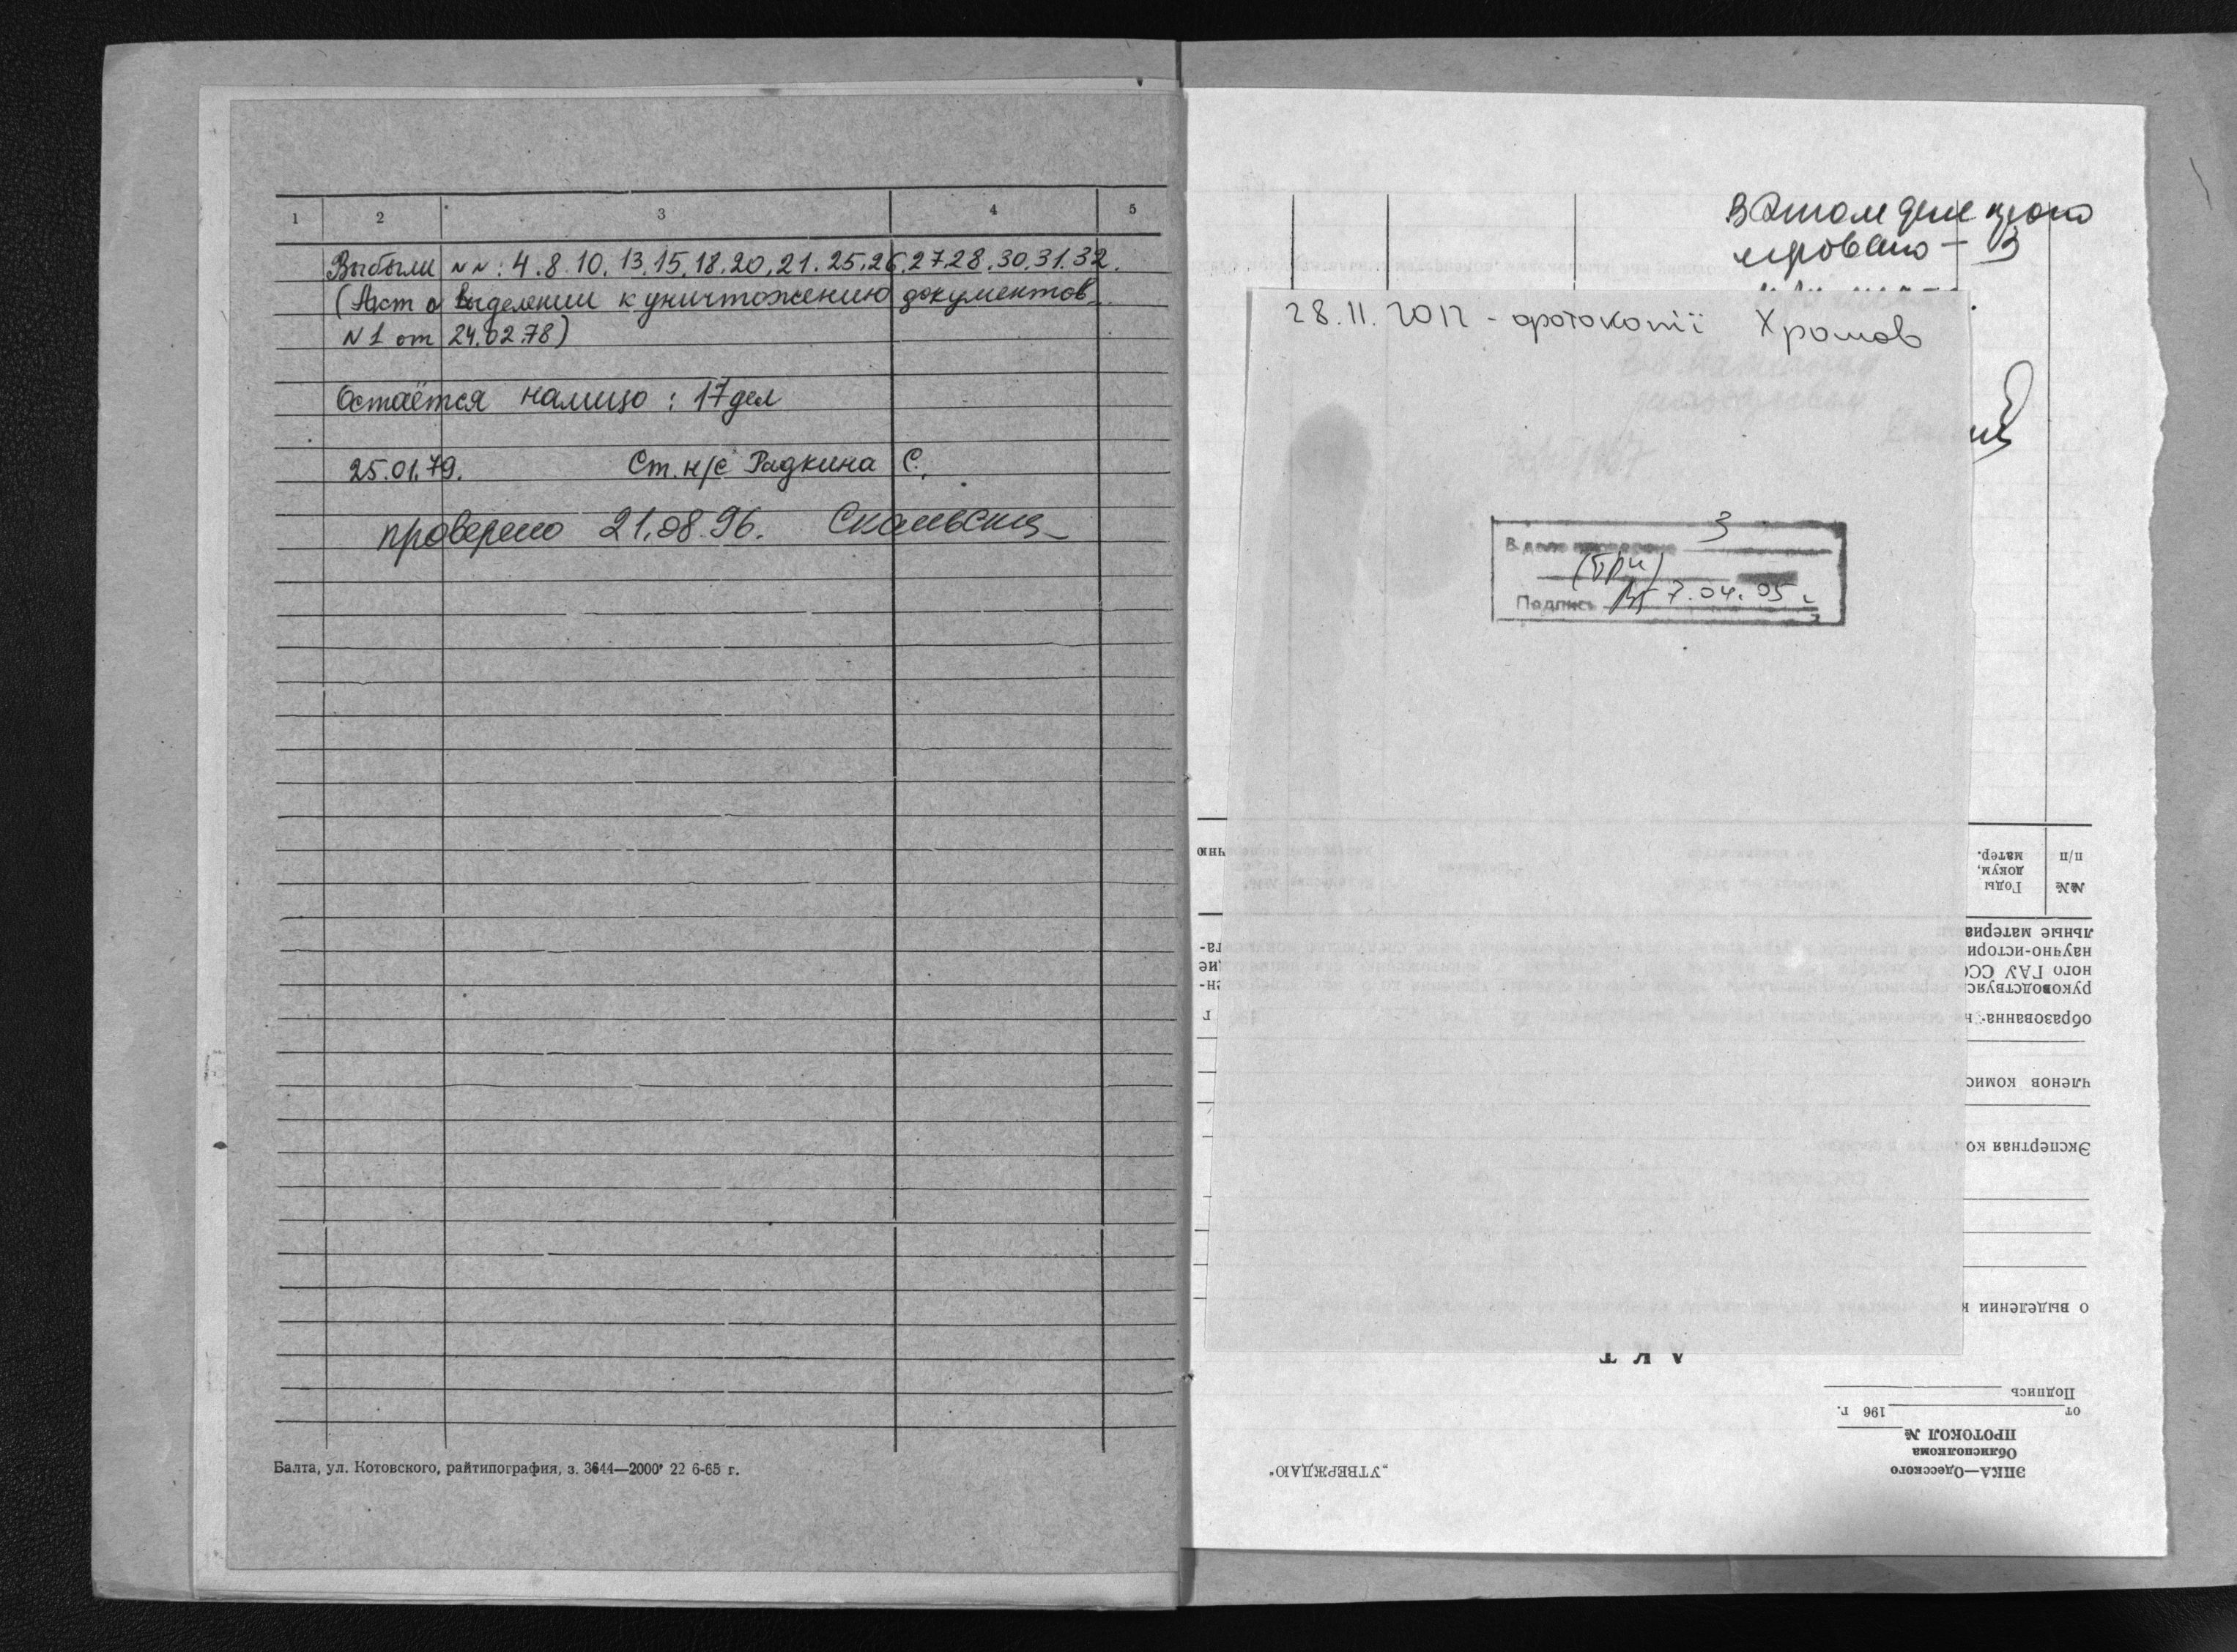 1 2 3 4 5
Выбыли №№: 4.8.10.13.15.18.20.21.25.26.27.28.30.31.32.
(Акт о выделении к уничтожению документов
N 1 от 24.02.78)
Остаётся налицо: 17 дел
25.01.79. Ст. н/с Радкина С.
проверено 21.08.96.
Балта, ул. Котовского, райтипография, з. 3644—2000' 22 6-65 г.
В этом деле прону
меровано — 3
28.11.2012 - фотокопії Хромов
3
В деле
(три)
Подпись 7.04.05 г.
№№
п/п
Годы
докум.
матер.
льные материа
научно-истори
ного ГАУ ССС
руководствуяс
образованна
членов комис
Экспертная ко
о выделении к
АКТ
Подпись
от 196 г.
ПРОТОКОЛ №
Облисполкома
ЭПКА—Одесского
„УТВЕРЖДАЮ"